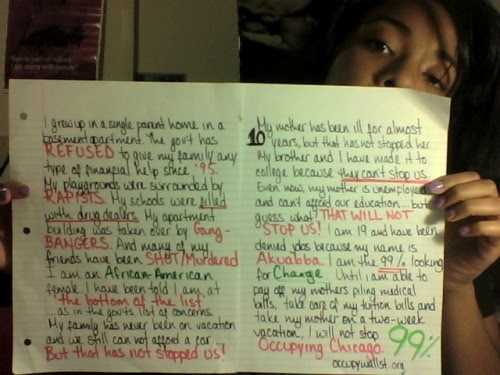 I grew up in a single parent home in a
basement apartment. The gov't has
REFUSED to give my family any
type of financial help since '95.
My playgrounds were surrounded by
RAPISTS. My schools were filled
with drug dealers. My apartment
building was taken over by Gang-
BANGERS. And many of my
friends have been SHOT/Murdered
I am an African-American
female. I have been told I am, at
the bottom of the list
...as in the gov'ts list of concerns.
My family has never been on vacation
and we still can not afford a car...
But that has not stopped us!
My mother has been ill for almost
10 years, but that has not stopped her.
My brother and I have made it to
college because they can't stop us.
Even now, my mother is unemployed
and can't afford our education.....but
guess what? THAT WILL NOT
STOP US! I am 19 and have been
denied jobs because my name is
Akuabba. I am the 99% looking
for Change. Until I am able to
pay off my mothers piling medical
bills, take care of my tuition bills and
take my mother on a two-week
vacation, I will not stop
Occupying Chicago. 99%
occupywallst.org